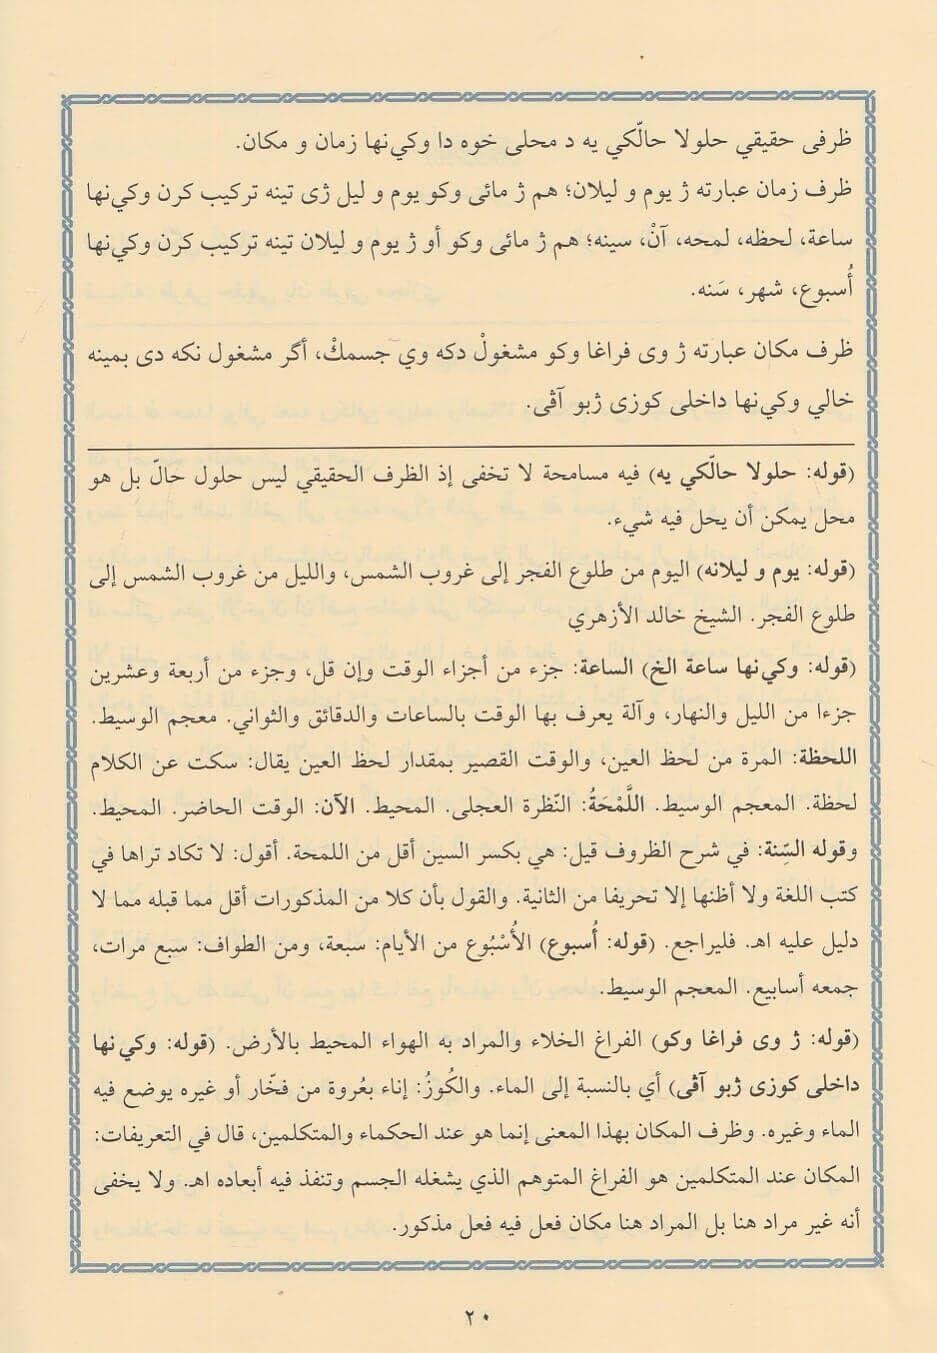 ظرفى حقيقي حلولا حالّكي يه د محلى خوه دا وكي‌نها زمان و مكان.
ظرف زمان عبارته ژ يوم و ليلان؛ هم ژ مائى وكو يوم و ليل ژى تينه تركيب كرن وكي‌نها
ساعة، لحظه، لمحه، آنْ، سينه؛ هم ژ مائى وكو أو ژ يوم و ليلان تينه تركيب كرن وكي‌نها
أُسبوع، شهر، سَنه.
ظرف مكان عبارته ژ وى فراغا وكو مشغولْ دكه وي جسمكْ، أگر مشغول نكه دى بمينه
خالي وكي‌نها داخلى كوزى ژبو آڤى.
(قوله: حلولا حالّكي يه) فيه مسامحة لا تخفى إذ الظرف الحقيقي ليس حلول حالّ بل هو
محل يمكن أن يحل فيه شيء.
(قوله: يوم و ليلانه) اليوم من طلوع الفجر إلى غروب الشمس، والليل من غروب الشمس إلى
طلوع الفجر. الشيخ خالد الأزهري
(قوله: وكي‌نها ساعة الخ) الساعة: جزء من أجزاء الوقت وإن قل، وجزء من أربعة وعشرين
جزءا من الليل والنهار، وآلة يعرف بها الوقت بالساعات والدقائق والثواني. معجم الوسيط.
اللحظة: المرة من لحظ العين، والوقت القصير بمقدار لحظ العين يقال: سكت عن الكلام
لحظة. المعجم الوسيط. اللَّمْحَةُ: النّظرة العجلى. المحيط. الآن: الوقت الحاضر. المحيط.
وقوله السِّنة: في شرح الظروف قيل: هي بكسر السين أقل من اللمحة. أقول: لا تكاد تراها في
كتب اللغة ولا أظنها إلا تحريفا من الثانية. والقول بأن كلا من المذكورات أقل مما قبله مما لا
دليل عليه اهـ. فليراجع. (قوله: أُسبوع) الأُسْبُوع من الأيام: سبعة، ومن الطواف: سبع مرات،
جمعه أسابيع. المعجم الوسيط.
(قوله: ژ وى فراغا وكو) الفراغ الخلاء والمراد به الهواء المحيط بالأرض. (قوله: وكي‌نها
داخلى كوزى ژبو آڤى) أي بالنسبة إلى الماء. والكُوزُ: إناء بعُروة من فخّار أو غيره يوضع فيه
الماء وغيره. وظرف المكان بهذا المعنى إنما هو عند الحكماء والمتكلمين، قال في التعريفات:
المكان عند المتكلمين هو الفراغ المتوهم الذي يشغله الجسم وتنفذ فيه أبعاده اهـ. ولا يخفى
أنه غير مراد هنا بل المراد هنا مكان فعل فيه فعل مذكور.
٢٠